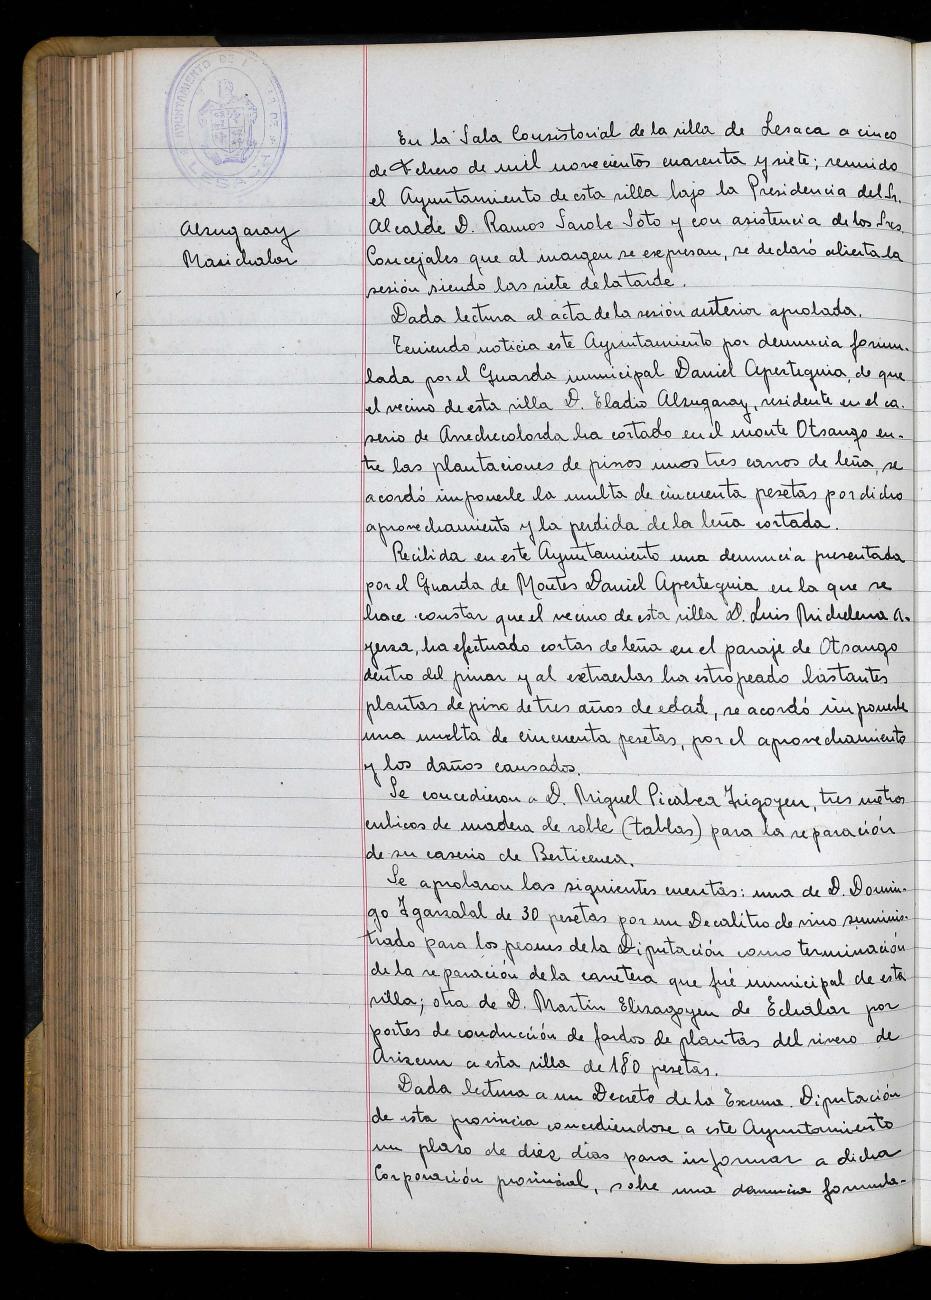 AYUNTAMIENTO DE
LESACA
Alzugaray
Marichalar
En la Sala Consistorial de la villa de Lesaca a cinco
de Febrero de mil novecientos cuarenta y siete; reunido
el Ayuntamiento de esta villa bajo la Presidencia del Sr.
Alcalde D. Ramos Sarobe Soto y con asistencia de los Sres.
Concejales que al margen se expresan, se declaró abierta la
sesión siendo las siete de la tarde.
Dada lectura al acta de la sesión anterior aprobada.
Teniendo noticia este Ayuntamiento por denuncia formu-
lada por el Guarda municipal Daniel Aperteguia, de que
el vecino de esta villa D. Eladio Alzugaray, residente en el ca-
serio de Arrechecolorda ha cortado en el monte Otsango en-
tre las plantaciones de pinos unos tres carros de leña, se
acordó imponerle la multa de cincuenta pesetas por dicho
aprovechamiento y la perdida de la leña cortada.
Recibida en este Ayuntamiento una denuncia presentada
por el Guarda de Montes Daniel Aperteguia en la que se
hace constar que el vecino de esta villa D. Luis Michelena A-
yerza, ha efectuado cortas de leña en el paraje de Otsango
dentro del pinar y al extraerlas ha estropeado bastantes
plantas de pino de tres años de edad, se acordó imponerle
una multa de cincuenta pesetas, por el aprovechamiento
y los daños causados.
Se concedieron a D. Miguel Picabea Irigoyen, tres metros
cubicos de madera de roble (tablas) para la reparación
de su caserio de Berticenea.
Se aprobaron las siguientes cuentas: una de D. Domin-
go Igarzabal de 30 pesetas por un Decalitro de vino suminis-
trado para los peones de la Diputación como terminación
de la reparación de la carretera que fué municipal de esta
villa; otra de D. Martin Elizagoyen de Echalar por
portes de conducción de fardos de plantas del vivero de
Arizcun a esta villa de 180 pesetas.
Dada lectura a un Decreto de la Excma. Diputación
de esta provincia concediendose a este Ayuntamiento
un plazo de diez dias para informar a dicha
Corporación provincial, sobre una denuncia formula-